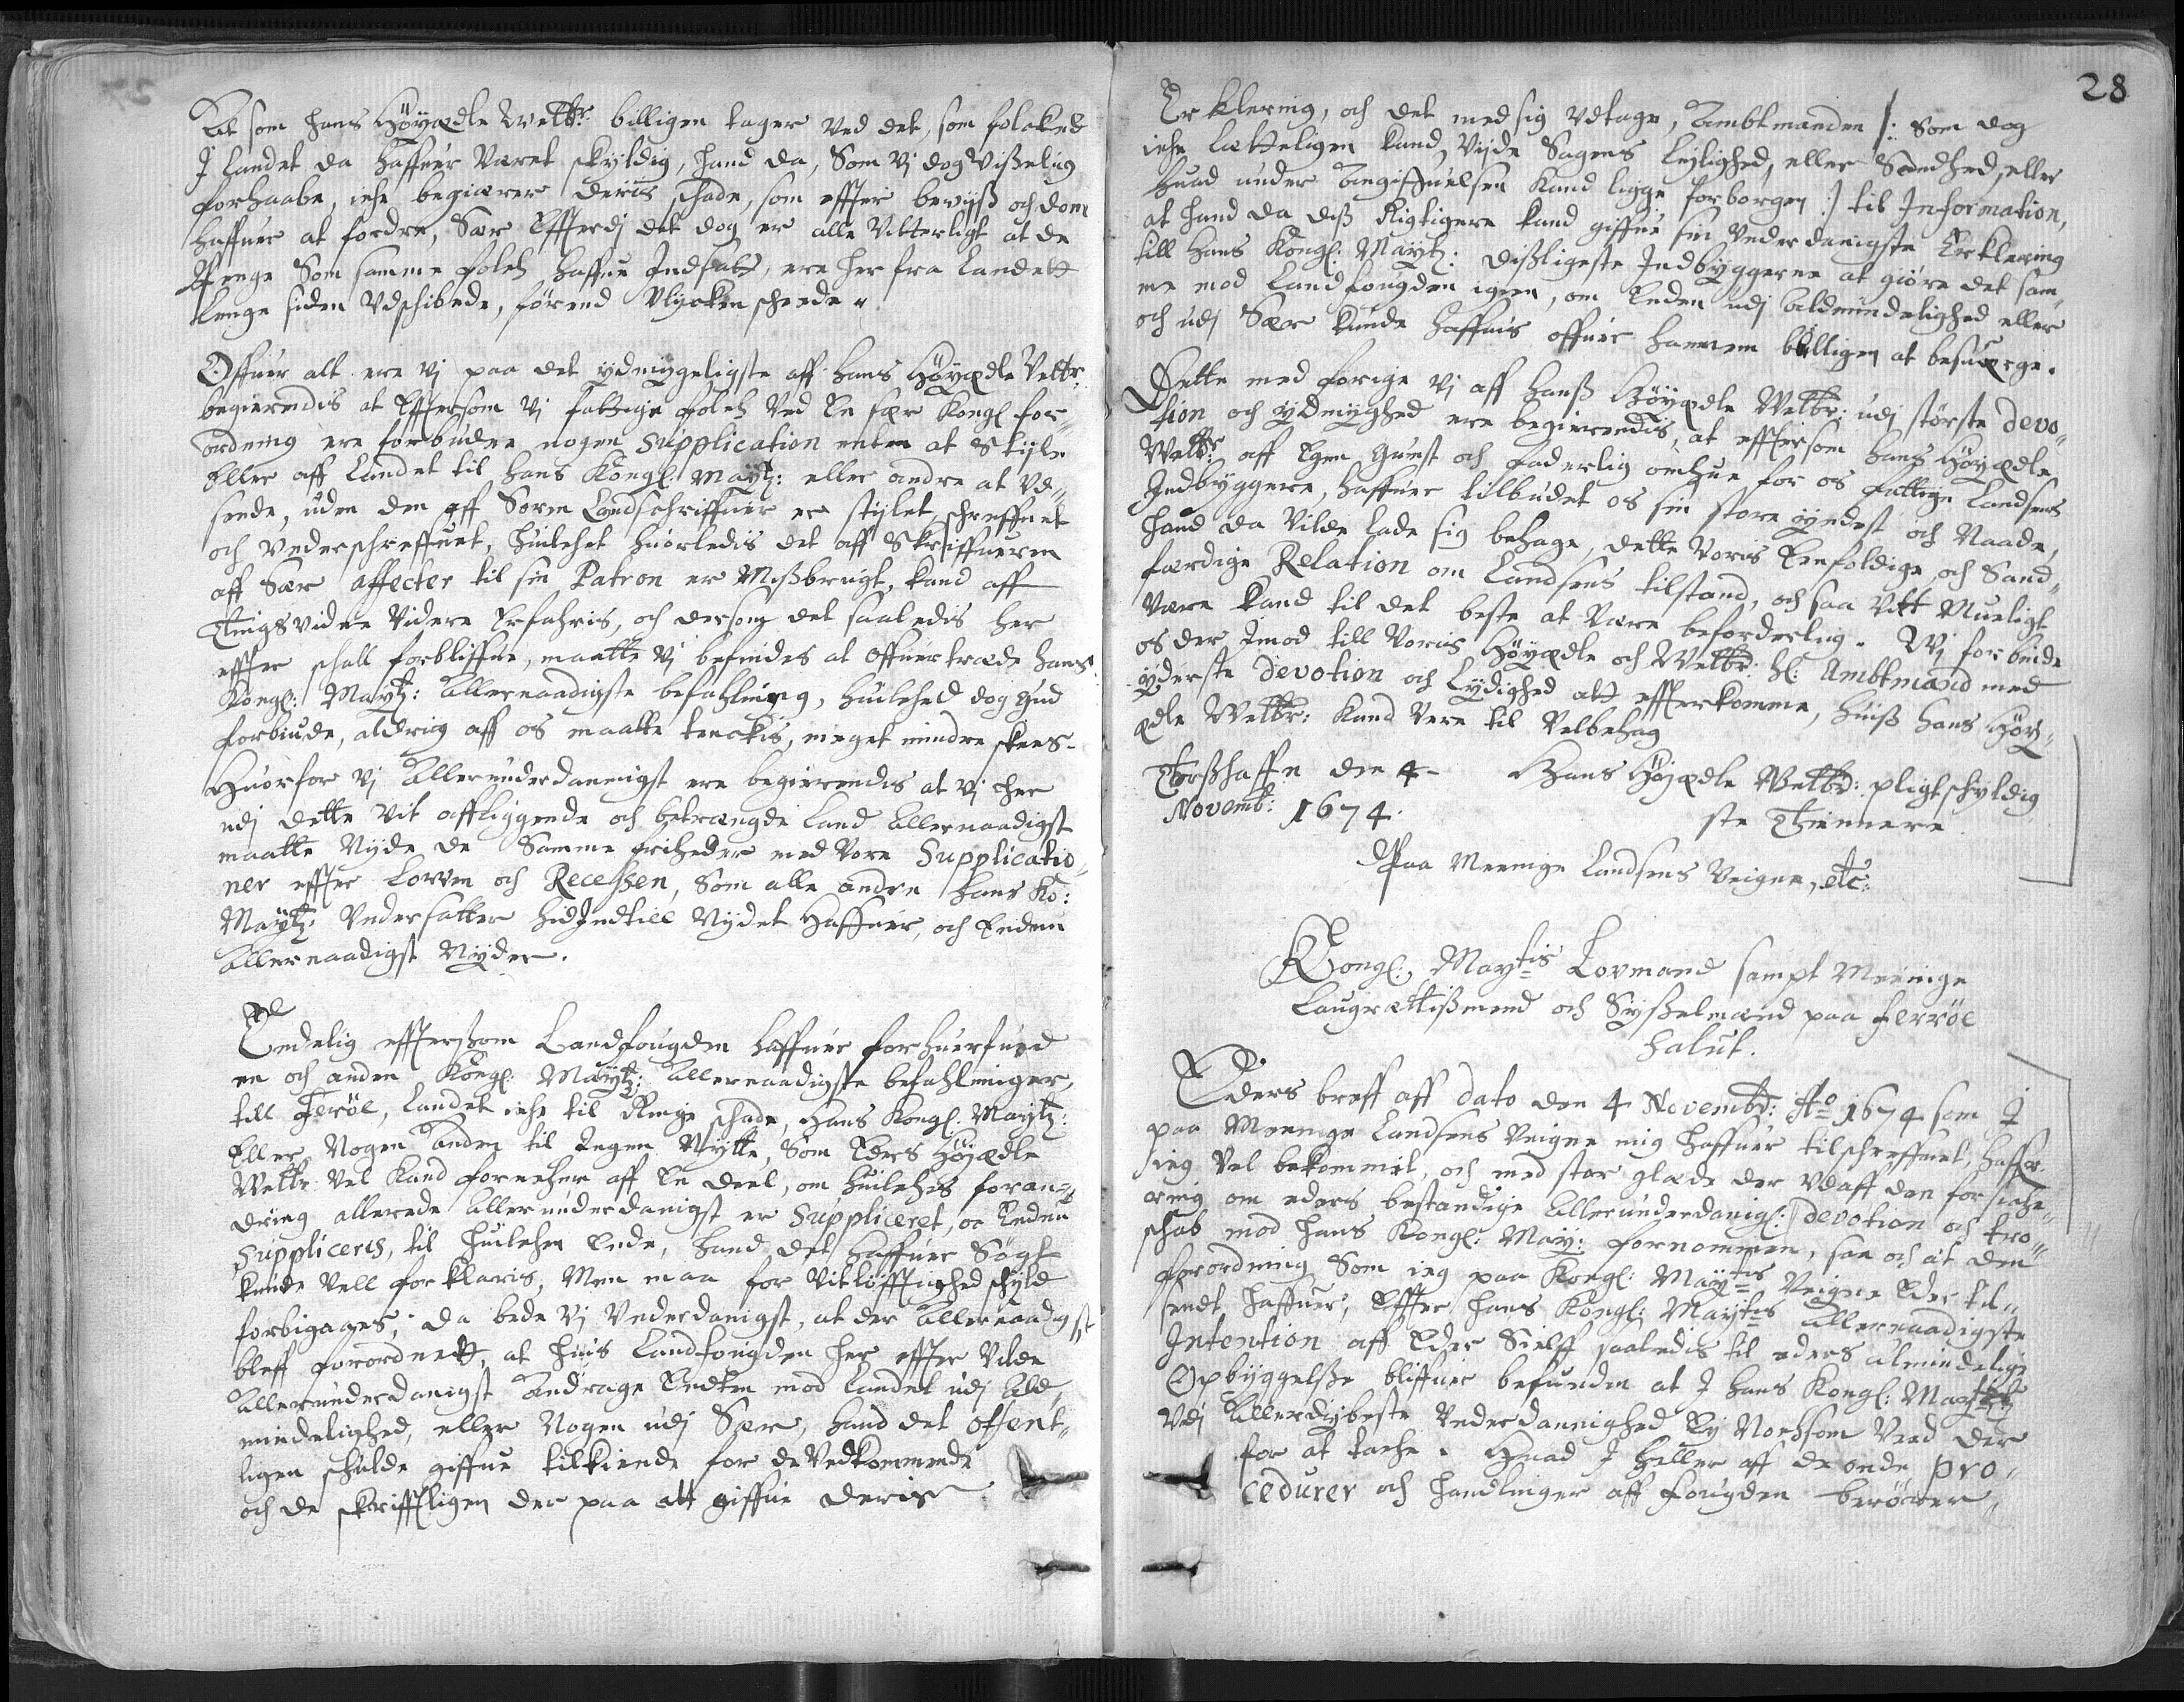 At som hans Höyædle Welbr: billigen tager ved det, som folcked
J Landet da haffuer været skyldig, hand da, Som vj dog Visselig
forhaabe, iche begiærer deris schade, som effter beviiß och dom
haffuer at fordre, Sær Effterdj det dog er alle Vitterligt at de
Penge Som samme folch haffue Indsatt, ere her fra Landett
lenge siden Vdschibede, förend Vlycken scheede.
Offuer alt ere vj paa det ydmygeligste aff hans Höyædle Velbr:
begierendis at Efftersom Vj fattige folch Ved En sær Kongl for„
ordning ere forbudne nogen Supplication enten at Style
Eller aff Landet til hans Kongl: Maytz: eller andre at Vd„
sende, uden den aff Soren Landschriffuer er stylet, schreffuet
och Vnderschreffuet, huilchet huorledis det aff Skriffueren
aff Sær affecter til sin Patron er Mißbrugt, kand aff
Tingsvidne Videre Erfahris, och dersom det saaledis her
effter schall forbliffue, maatte vj befindes at Offuertræde hans
Kongl: Maytz: Allernaadigste befahling, huilched dog Gud
forbiude, aldrig aff os maatte tenckis, meget mindre skees.
Huorfor vj Allerunderdannigst ere begierendis at vj her
udj dette Vit affliggende och betrængde Land Allernaadigst
maatte Nyde de Samme friheder med Vore Supplicatio„
ner effter Loven och Recessen, Som alle andre hans Ko:
Maytz: Vndersatter hidIndtill Nydet Haffuer, och Endnu
Allernaadigst Nyder.
Endelig efftersom Landfougden haffuer forhuerfued
en och anden Kongl: Maytz: Allernaadigste befahlinger,
till Feröe, Landet iche til Ringe schade, Hans Kongl: Maytz:
Eller Nogen Anden til Ingen Nytte, Som Eders Höyædle
Welbr Vel Kand fornehme aff En deel, om huilches foran„
dring allerede Allerunderdanigst er Suppliceret, oc Endnu
Suppliceris, til huilchen Ende, hand det haffuer Sögt
kunde Vell forklaris, Men maa for Vitlöfftighed schyld
forbigaaes, da bede Vj Vnderdanigst, at der Allernaadigst
bleff forordnett, at huis Landfougden her effter Vilde
Allerunderdanigst Andrage Endten mod Landet udj Ald„
mindelighed, eller Nogen udj Sær, hand det offent„
ligen schulde giffue tilkiende for de Vedkommende
och de skrifftligen der paa att giffue deris
28
Erklering, och det med sig Vdtage, Ambtmanden /: Som dog
iche letteligen kand Vide Sagens Leylighed, eller Sandhed, eller
huad under Angiffuelsen kand ligge forborgen :/ til Information,
at hand da diß Rigtigere kand giffue sin Vnderdanigste Erklering
till Hans Kongl: Maytz: dißligeste Indbyggerne at giöre det sam„
me mod Landfougden igien, om Enden udj Aldmindelighed eller
och udj Sær kunde haffuis offuer hannem billigen at besuerge.
Dette med forige vj aff Hanß Höyædle Welbr: udj störste devo„
tion och ydmyghed ere begierendis, at efftersom hans Höyædle
Welbr: aff Egen Gunst och faderlig omhue for os fattige Landsens
Indbyggere, haffuer tilbudet os sin store yndest och Naade,
hand da Vilde lade sig behage, dette Voris Eenfoldige och Sand„
færdige Relation om Landsens tilstand, och saa Vitt Mueligt
Være kand til det beste at Være beforderlig. Wj forbinde
os der imod till Voris Höyædle och Welbr: hl: Ambtmand med
yderste devotion och Lydighed att effterkomme, huiß Hans Höy„
ædle Welbr: kand Vere til Velbehag
Torßhaffn den 4 Hans Höyædle Welbr: pligtschyldig
Novemb: 1674. ste Thiennere
Paa Meenige Landsens Veigne, etc:
Kongl: Maytis Lovmand sampt Meenige
Laugrettißmend och Sysselmænd paa Ferröe
Salut.
Eders breff aff dato den 4 Novembr: Ao 1674 som I
paa Meenige Landsens Veigne mig haffuer tilschreffuet, haffr
ieg Vel bekommit, och med stor glæde der Vdaff den forsiche„
ring om eders bestandige Allerunderdanigl: devotion och tro„
schab mod hans Kongl: May: fornommen, saa och at den
forordning Som ieg paa Kongl: Maytis Veigne Eder til„
sendt haffuer, Effter hans Kongl: Maytis Allernaadigste
Intention aff Eder Sielff saaledis til eders almindelige
Opbyggelße bliffuer befunden at I hans Kongl: Maytz
Vdj Allerdybeste Vnderdannighed Ey Nochsom Veed der
for at tache. Huad I heller aff de onde pro„
cedurer och handlinger aff fougden berörer„